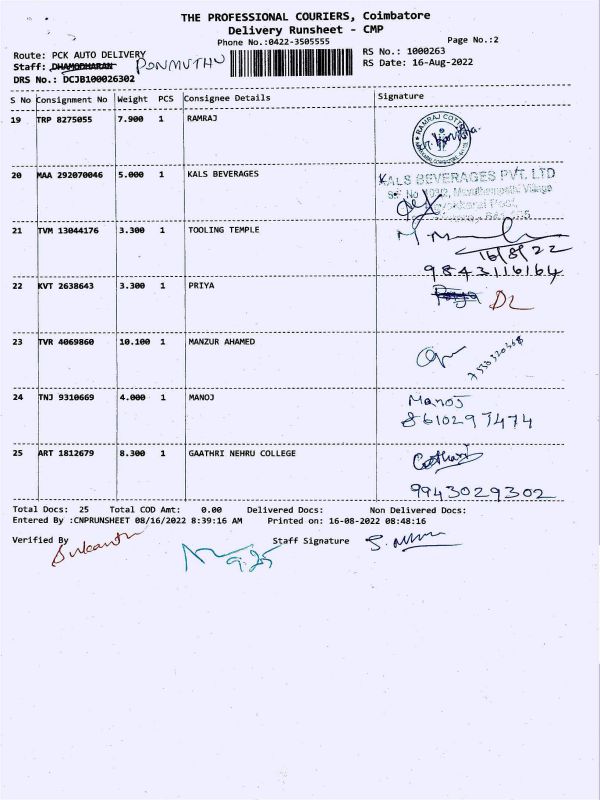 THE PROFESSIONAL COURIERS, Coimbatore
Delivery Runsheet - CMP
Phone No.:0422-3505555
Page No.:2
Route: PCK AUTO DELIVERY
RS No.: 1000263
Staff: DHAMODHARAN PONMUTHU
RS Date: 16-Aug-2022
DRS No.: DCJB100026302
S No Consignment No Weight PCS Consignee Details Signature
19 TRP 8275055 7.900 1 RAMRAJ
RAMRAJ COTTON
20 MAA 292070046 5.000 1 KALS BEVERAGES
KALS BEVERAGES PVT. LTD
Village
21 TVM 13044176 3.300 1 TOOLING TEMPLE
16/8/22
9843116164
22 KVT 2638643 3.300 1 PRIYA
Priya DL
23 TVR 4069860 10.100 1 MANZUR AHAMED
24 TNJ 9310669 4.000 1 MANOJ
Manoj
8610297474
25 ART 1812679 8.300 1 GAATHRI NEHRU COLLEGE
Gathari
9943029302
Total Docs: 25 Total COD Amt: 0.00 Delivered Docs: Non Delivered Docs:
Entered By :CNPRUNSHEET 08/16/2022 8:39:16 AM Printed on: 16-08-2022 08:48:16
Verified By Staff Signature
9.25